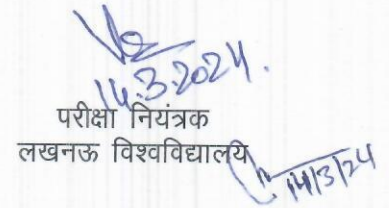 14.3.2024.
परीक्षा नियंत्रक
लखनऊ विश्वविद्यालय
14/3/24